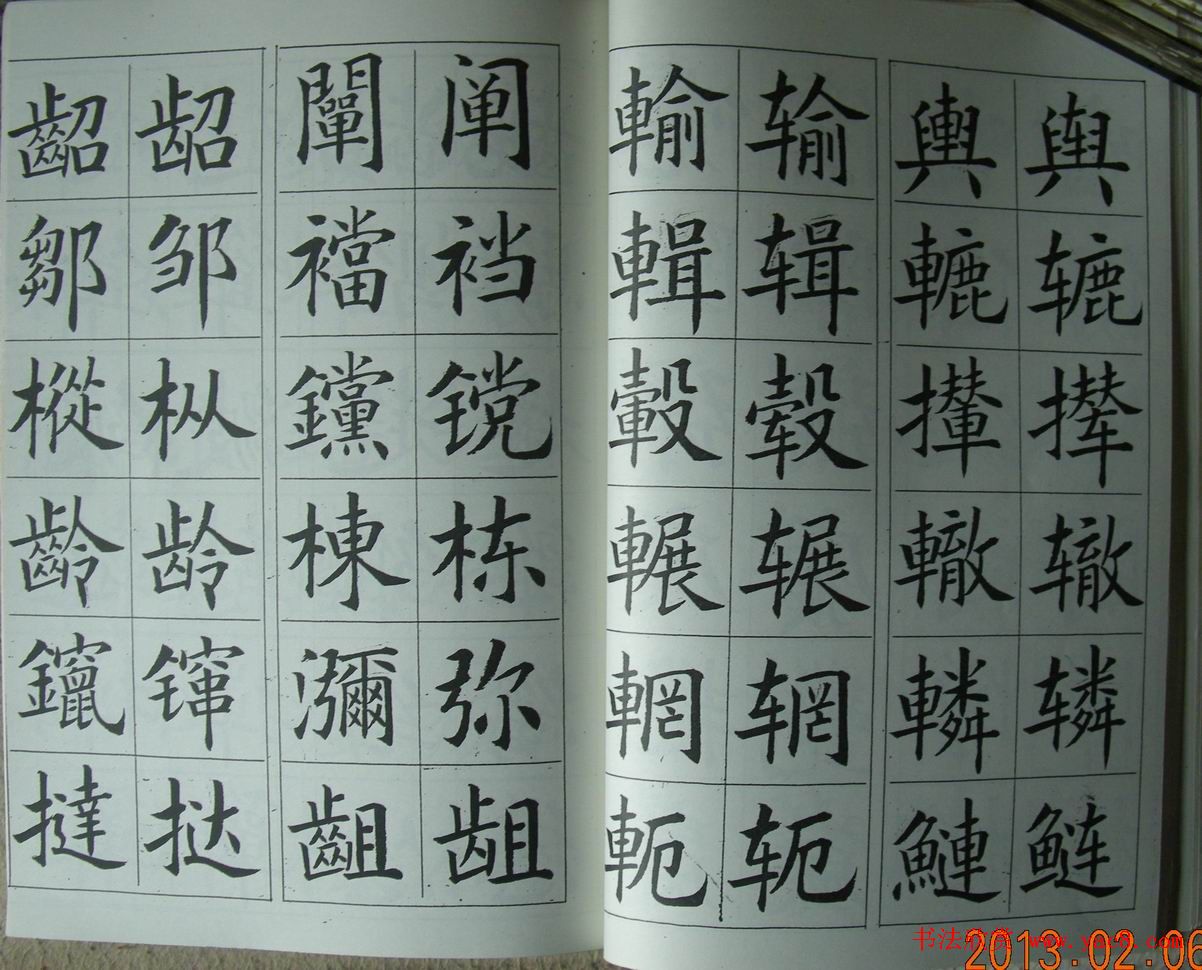 齠 龆 闡 阐 輸 输 輿 舆
鄒 邹 襠 裆 輯 辑 轆 辘
樅 枞 钂 镋 轂 毂 攆 撵
齡 龄 棟 栋 輾 辗 轍 辙
鑹 镩 瀰 弥 輞 辋 轔 辚
撻 挞 齟 龃 軛 轭 鰱 鲢
2013.02.06